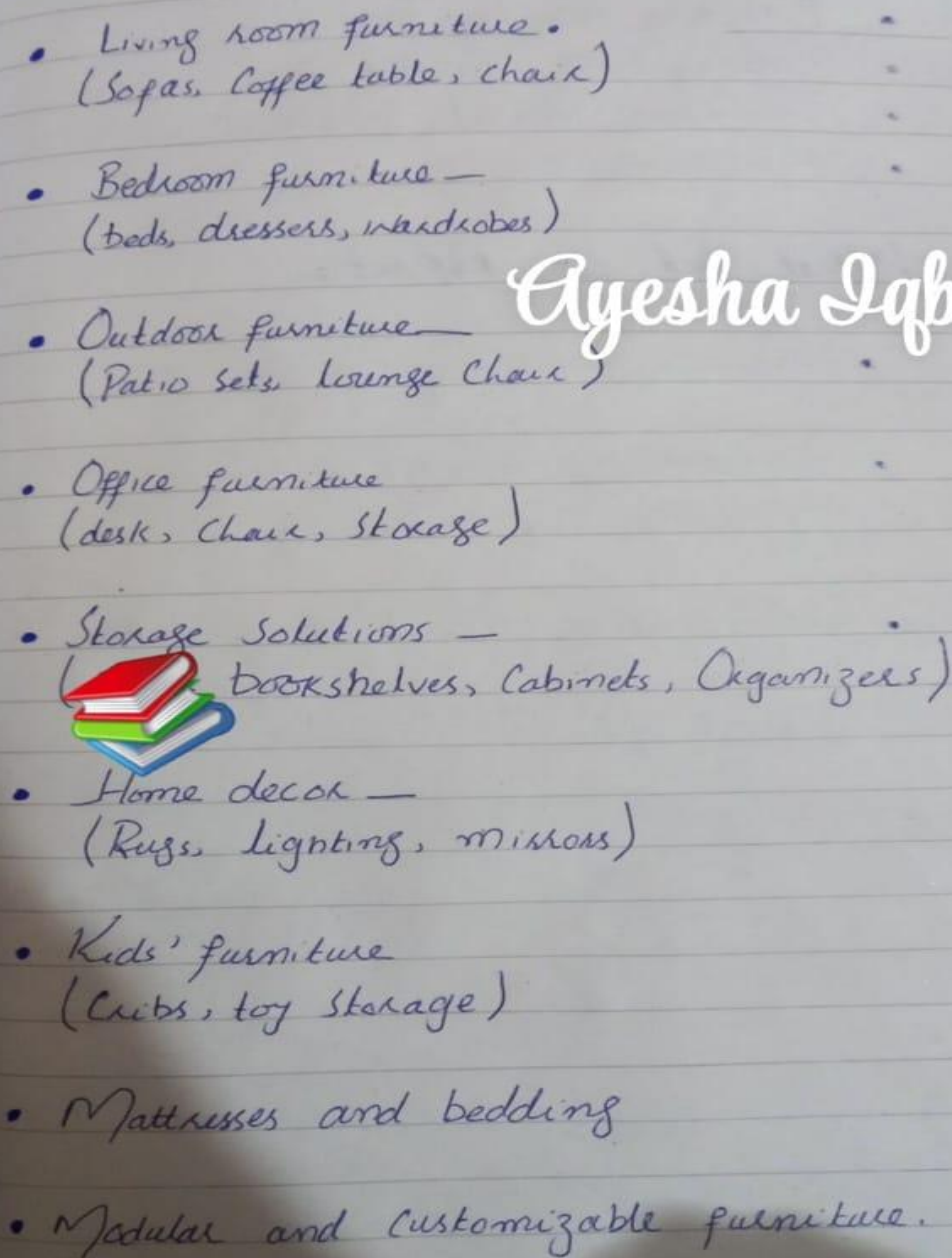 • Living room furniture.
(Sofas, Coffee table, chair)
• Bedroom furniture —
(beds, dressers, wardrobes)
Ayesha Iqb
• Outdoor furniture —
(Patio sets, lounge Chair)
• Office furniture
(desk, Chair, Storage)
• Storage Solutions —
( bookshelves, Cabinets, Organizers)
• Home decor —
(Rugs, lighting, mirrors)
• Kids' furniture
(Cribs, toy Storage)
• Mattresses and bedding
• Modular and Customizable furniture.